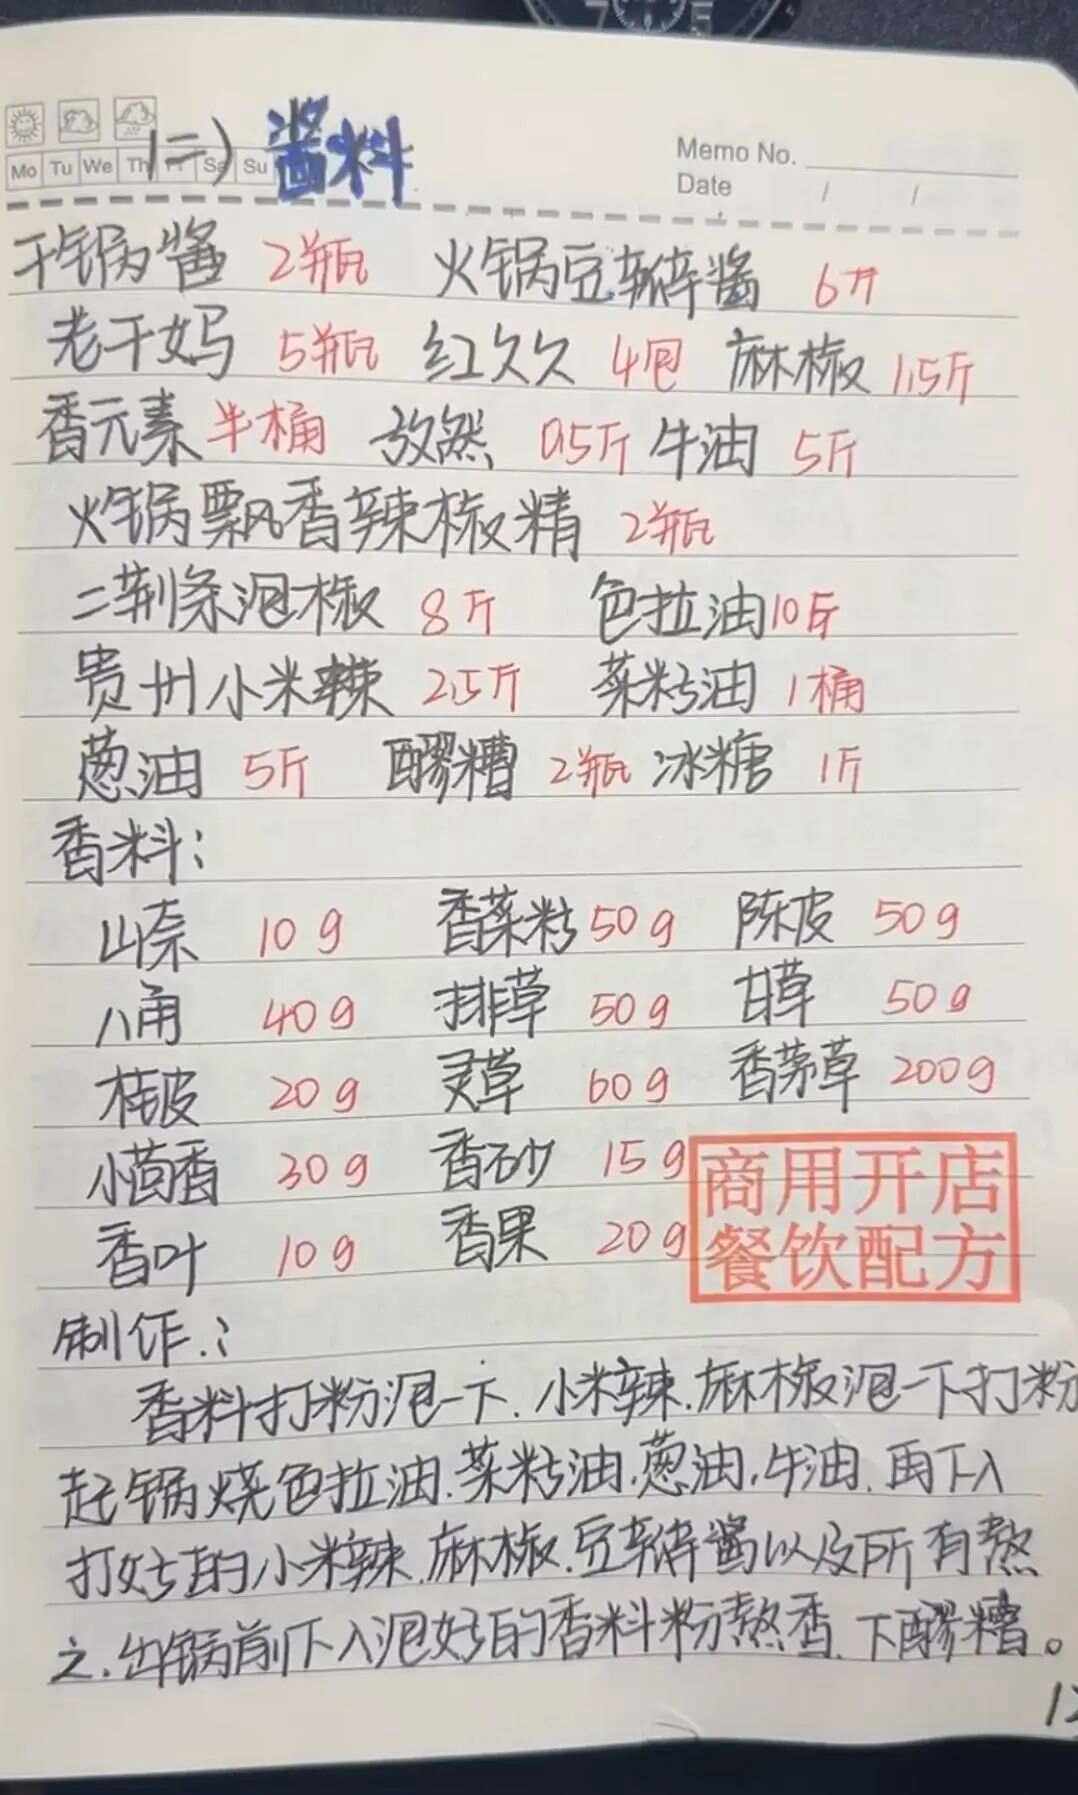 7 5
(二) 酱料
Mo Tu We Th Fr Sa Su
Memo No.
Date / /
干锅酱 2瓶 火锅豆瓣酱 6斤
老干妈 5瓶 红久久 4包 麻椒 1.5斤
香元素 半桶 孜然 0.5斤 牛油 5斤
火锅飘香辣椒精 2瓶
二荆条泡椒 8斤 色拉油 10斤
贵州小米辣 2.5斤 菜籽油 1桶
葱油 5斤 醪糟 2瓶 冰糖 1斤
香料:
山奈 10g 香菜籽 50g 陈皮 50g
八角 40g 排草 50g 甘草 50g
桂皮 20g 灵草 60g 香茅草 200g
小茴香 30g 香砂 15g
香叶 10g 香果 20g
商用开店
餐饮配方
制作:
香料打粉泡一下.小米辣.麻椒泡一下打粉
起锅烧色拉油.菜籽油.葱油.牛油.再下入
打好的小米辣.麻椒.豆瓣酱以及所有熬
之.出锅前下入泡好的香料粉熬香.下醪糟。